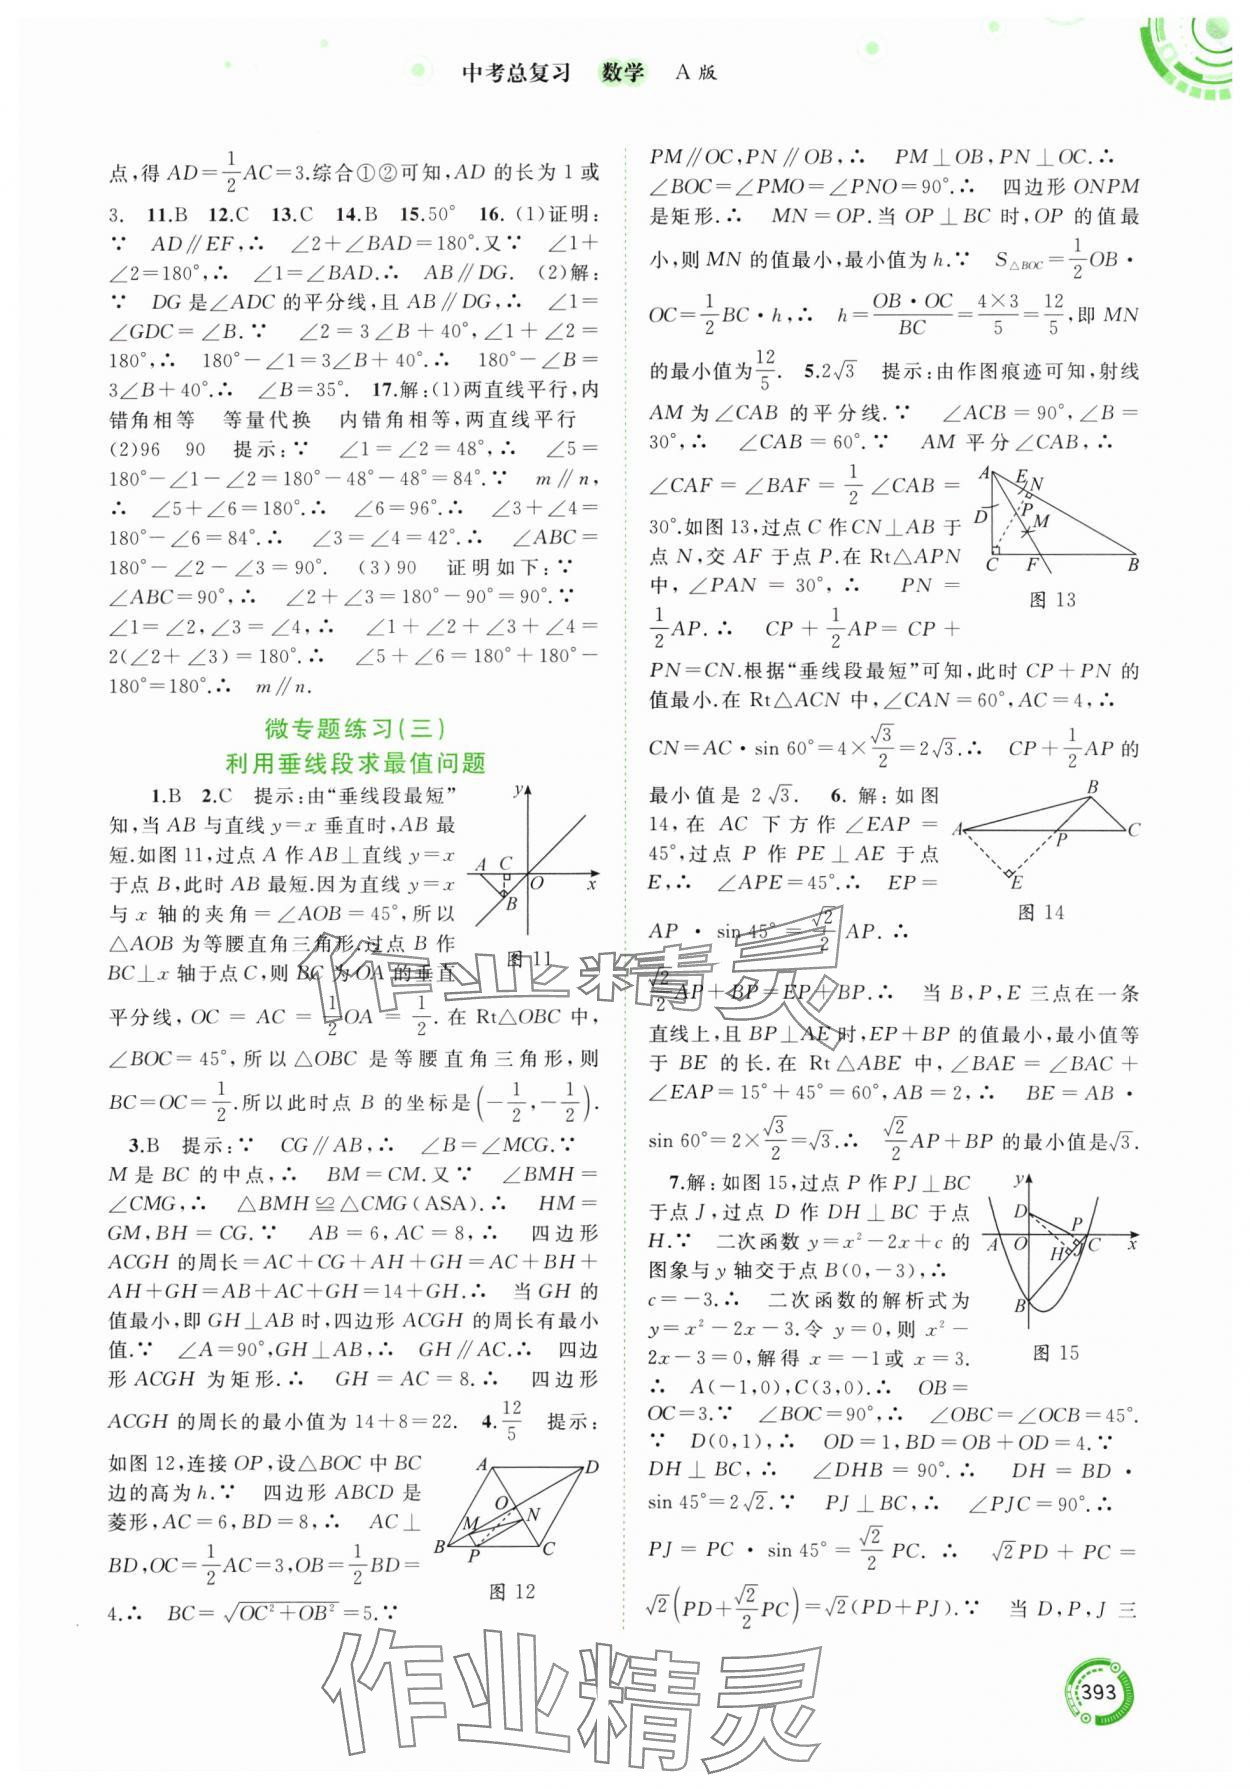 中考总复习 数学 A 版
点,得 AD=1/2AC=3.综合①②可知,AD 的长为 1 或
3. 11.B 12.C 13.C 14.B 15.50° 16.(1)证明:
∵ AD∥EF,∴ ∠2+∠BAD=180°.又∵ ∠1+
∠2=180°,∴ ∠1=∠BAD.∴ AB∥DG. (2)解:
∵ DG 是∠ADC 的平分线,且 AB∥DG,∴ ∠1=
∠GDC=∠B.∵ ∠2=3∠B+40°,∠1+∠2=
180°,∴ 180°-∠1=3∠B+40°.∴ 180°-∠B=
3∠B+40°.∴ ∠B=35°. 17.解:(1)两直线平行,内
错角相等 等量代换 内错角相等,两直线平行
(2)96 90 提示:∵ ∠1=∠2=48°,∴ ∠5=
180°-∠1-∠2=180°-48°-48°=84°.∵ m∥n,
∴ ∠5+∠6=180°.∴ ∠6=96°.∴ ∠3+∠4=
180°-∠6=84°.∴ ∠3=∠4=42°.∴ ∠ABC=
180°-∠2-∠3=90°. (3)90 证明如下:∵
∠ABC=90°,∴ ∠2+∠3=180°-90°=90°.∵
∠1=∠2,∠3=∠4,∴ ∠1+∠2+∠3+∠4=
2(∠2+∠3)=180°.∴ ∠5+∠6=180°+180°-
180°=180°.∴ m∥n.
微专题练习(三)
利用垂线段求最值问题
1.B 2.C 提示:由“垂线段最短”
知,当 AB 与直线 y=x 垂直时,AB 最
短.如图 11,过点 A 作 AB⊥直线 y=x
于点 B,此时 AB 最短.因为直线 y=x
与 x 轴的夹角=∠AOB=45°,所以
△AOB 为等腰直角三角形.过点 B 作
BC⊥x 轴于点 C,则 BC 为 OA 的垂直
平分线,OC=AC=1/2OA=1/2.在 Rt△OBC 中,
∠BOC=45°,所以△OBC 是等腰直角三角形,则
BC=OC=1/2.所以此时点 B 的坐标是(-1/2,-1/2).
y
A C O x
B
图 11
3.B 提示:∵ CG∥AB,∴ ∠B=∠MCG.∵
M 是 BC 的中点,∴ BM=CM.又∵ ∠BMH=
∠CMG,∴ △BMH≌△CMG(ASA).∴ HM=
GM,BH=CG.∵ AB=6,AC=8,∴ 四边形
ACGH 的周长=AC+CG+AH+GH=AC+BH+
AH+GH=AB+AC+GH=14+GH.∴ 当 GH 的
值最小,即 GH⊥AB 时,四边形 ACGH 的周长有最小
值.∵ ∠A=90°,GH⊥AB,∴ GH∥AC.∴ 四边
形 ACGH 为矩形.∴ GH=AC=8.∴ 四边形
ACGH 的周长的最小值为 14+8=22. 4.12/5 提示:
如图 12,连接 OP,设△BOC 中 BC
边的高为 h.∵ 四边形 ABCD 是
菱形,AC=6,BD=8,∴ AC⊥
BD,OC=1/2AC=3,OB=1/2BD=
4.∴ BC=√(OC²+OB²)=5.∵
A D
O
M N
B P C
图 12
PM∥OC,PN∥OB,∴ PM⊥OB,PN⊥OC.∴
∠BOC=∠PMO=∠PNO=90°.∴ 四边形 ONPM
是矩形.∴ MN=OP.当 OP⊥BC 时,OP 的值最
小,则 MN 的值最小,最小值为 h.∵ S△BOC=1/2OB·
OC=1/2BC·h,∴ h=OB·OC/BC=4×3/5=12/5,即 MN
的最小值为12/5. 5.2√3 提示:由作图痕迹可知,射线
AM 为∠CAB 的平分线.∵ ∠ACB=90°,∠B=
30°,∴ ∠CAB=60°.∵ AM 平分∠CAB,∴
∠CAF=∠BAF=1/2∠CAB=
30°.如图 13,过点 C 作 CN⊥AB 于
点 N,交 AF 于点 P.在 Rt△APN
中,∠PAN=30°,∴ PN=
1/2AP.∴ CP+1/2AP=CP+
A E N
D P M
C F B
图 13
PN=CN.根据“垂线段最短”可知,此时 CP+PN 的
值最小.在 Rt△ACN 中,∠CAN=60°,AC=4,∴
CN=AC·sin 60°=4×√3/2=2√3.∴ CP+1/2AP 的
最小值是 2√3. 6. 解:如图
14,在 AC 下方作∠EAP=
45°,过点 P 作 PE⊥AE 于点
E,∴ ∠APE=45°.∴ EP=
AP·sin 45°=√2/2AP.∴
B
A P C
E
图 14
√2/2AP+BP=EP+BP.∴ 当 B,P,E 三点在一条
直线上,且 BP⊥AE 时,EP+BP 的值最小,最小值等
于 BE 的长.在 Rt△ABE 中,∠BAE=∠BAC+
∠EAP=15°+45°=60°,AB=2,∴ BE=AB·
sin 60°=2×√3/2=√3.∴ √2/2AP+BP 的最小值是√3.
7.解:如图 15,过点 P 作 PJ⊥BC
于点 J,过点 D 作 DH⊥BC 于点
H.∵ 二次函数 y=x²-2x+c 的
图象与 y 轴交于点 B(0,-3),∴
c=-3.∴ 二次函数的解析式为
y=x²-2x-3.令 y=0,则 x²-
2x-3=0,解得 x=-1或 x=3.
∴ A(-1,0),C(3,0).∴ OB=
y
D P
A O H J C x
B
图 15
OC=3.∵ ∠BOC=90°,∴ ∠OBC=∠OCB=45°.
∵ D(0,1),∴ OD=1,BD=OB+OD=4.∵
DH⊥BC,∴ ∠DHB=90°.∴ DH=BD·
sin 45°=2√2.∵ PJ⊥BC,∴ ∠PJC=90°.∴
PJ=PC·sin 45°=√2/2PC.∴ √2PD+PC=
√2(PD+√2/2PC)=√2(PD+PJ).∵ 当 D,P,J 三
作业精灵
作业精灵
393